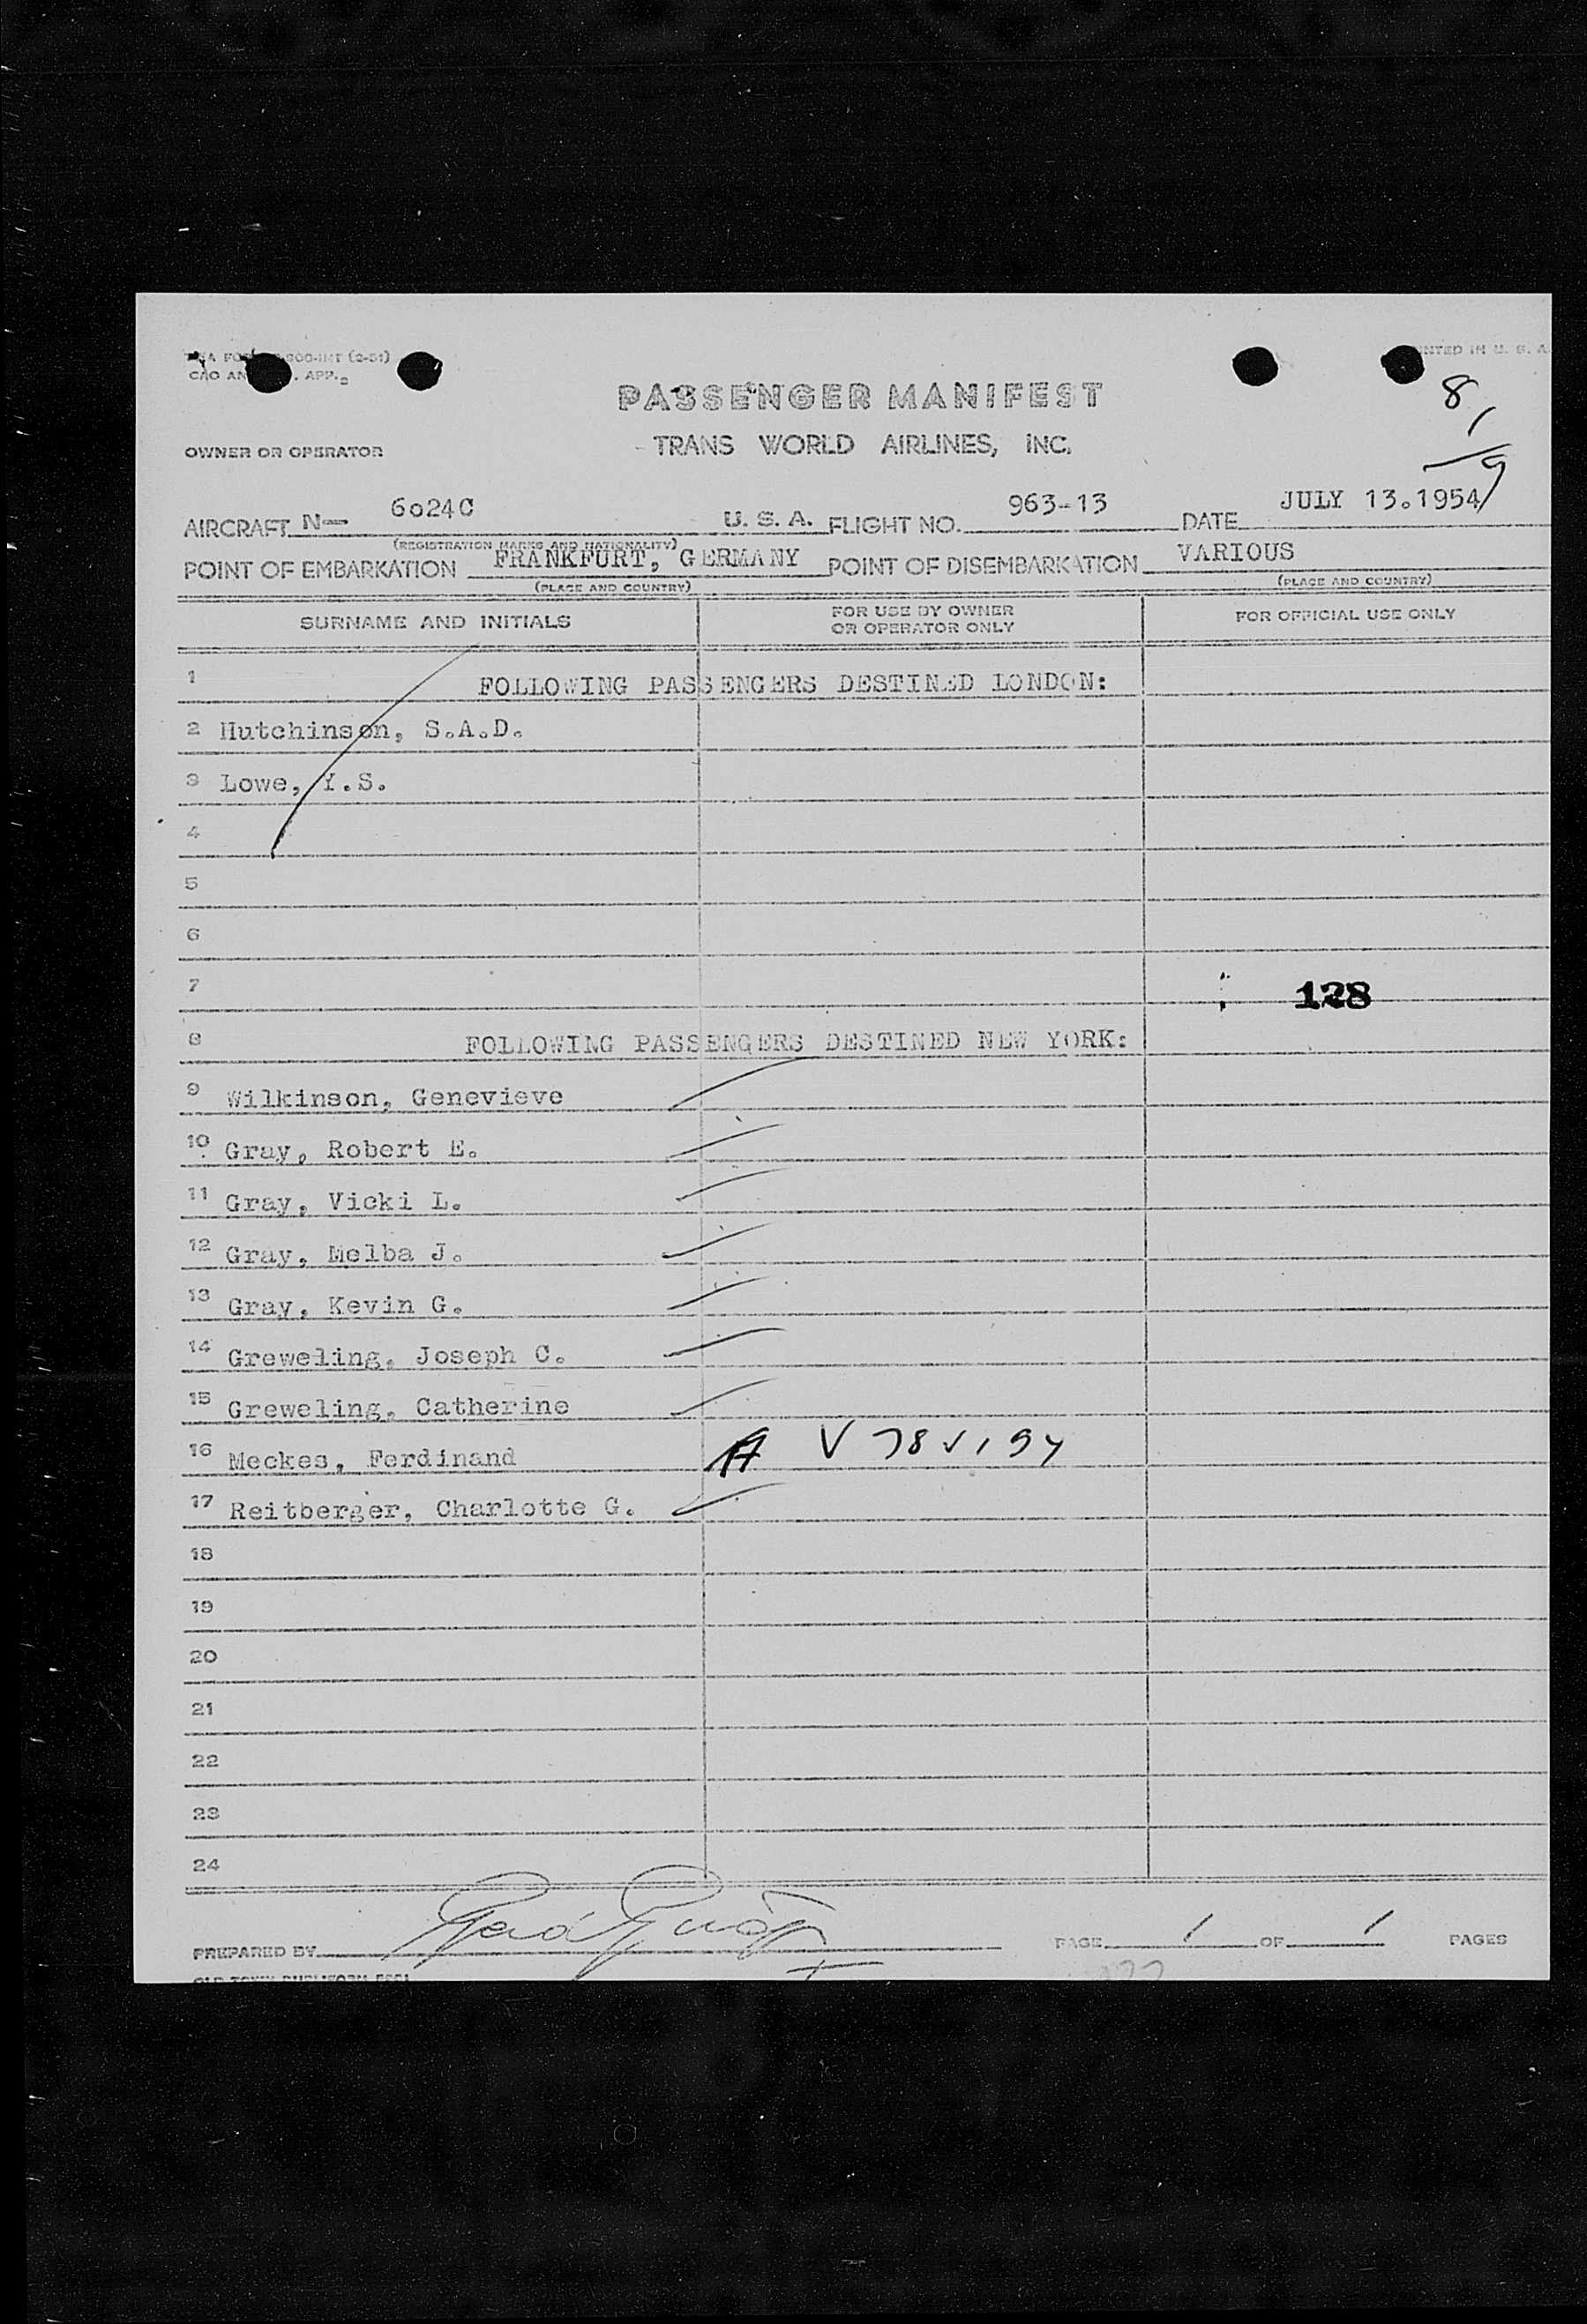 PRINTED IN U. S. A.
CAO AN . APP.
PASSENGER MANIFEST
8
OWNER OR OPERATOR
TRANS WORLD AIRLINES, INC.
1
9
AIRCRAFT N— 6024C U. S. A. FLIGHT NO. 963-13 DATE JULY 13.1954
(REGISTRATION MARKS AND NATIONALITY)
POINT OF EMBARKATION FRANKFURT, GERMANY POINT OF DISEMBARKATION VARIOUS
(PLACE AND COUNTRY) (PLACE AND COUNTRY)
SURNAME AND INITIALS FOR USE BY OWNER OR OPERATOR ONLY FOR OFFICIAL USE ONLY
1 FOLLOWING PASSENGERS DESTINED LONDON:
2 Hutchinson, S.A.D.
3 Lowe, Y.S.
4
5
6
7 128
8 FOLLOWING PASSENGERS DESTINED NEW YORK:
9 Wilkinson, Genevieve
10 Gray, Robert E.
11 Gray, Vicki L.
12 Gray, Melba J.
13 Gray, Kevin G.
14 Greweling, Joseph C.
15 Greweling, Catherine
16 Meckes, Ferdinand A
17 Reitberger, Charlotte G.
18
19
20
21
22
23
24
PREPARED BY PAGE 1 OF 1 PAGES